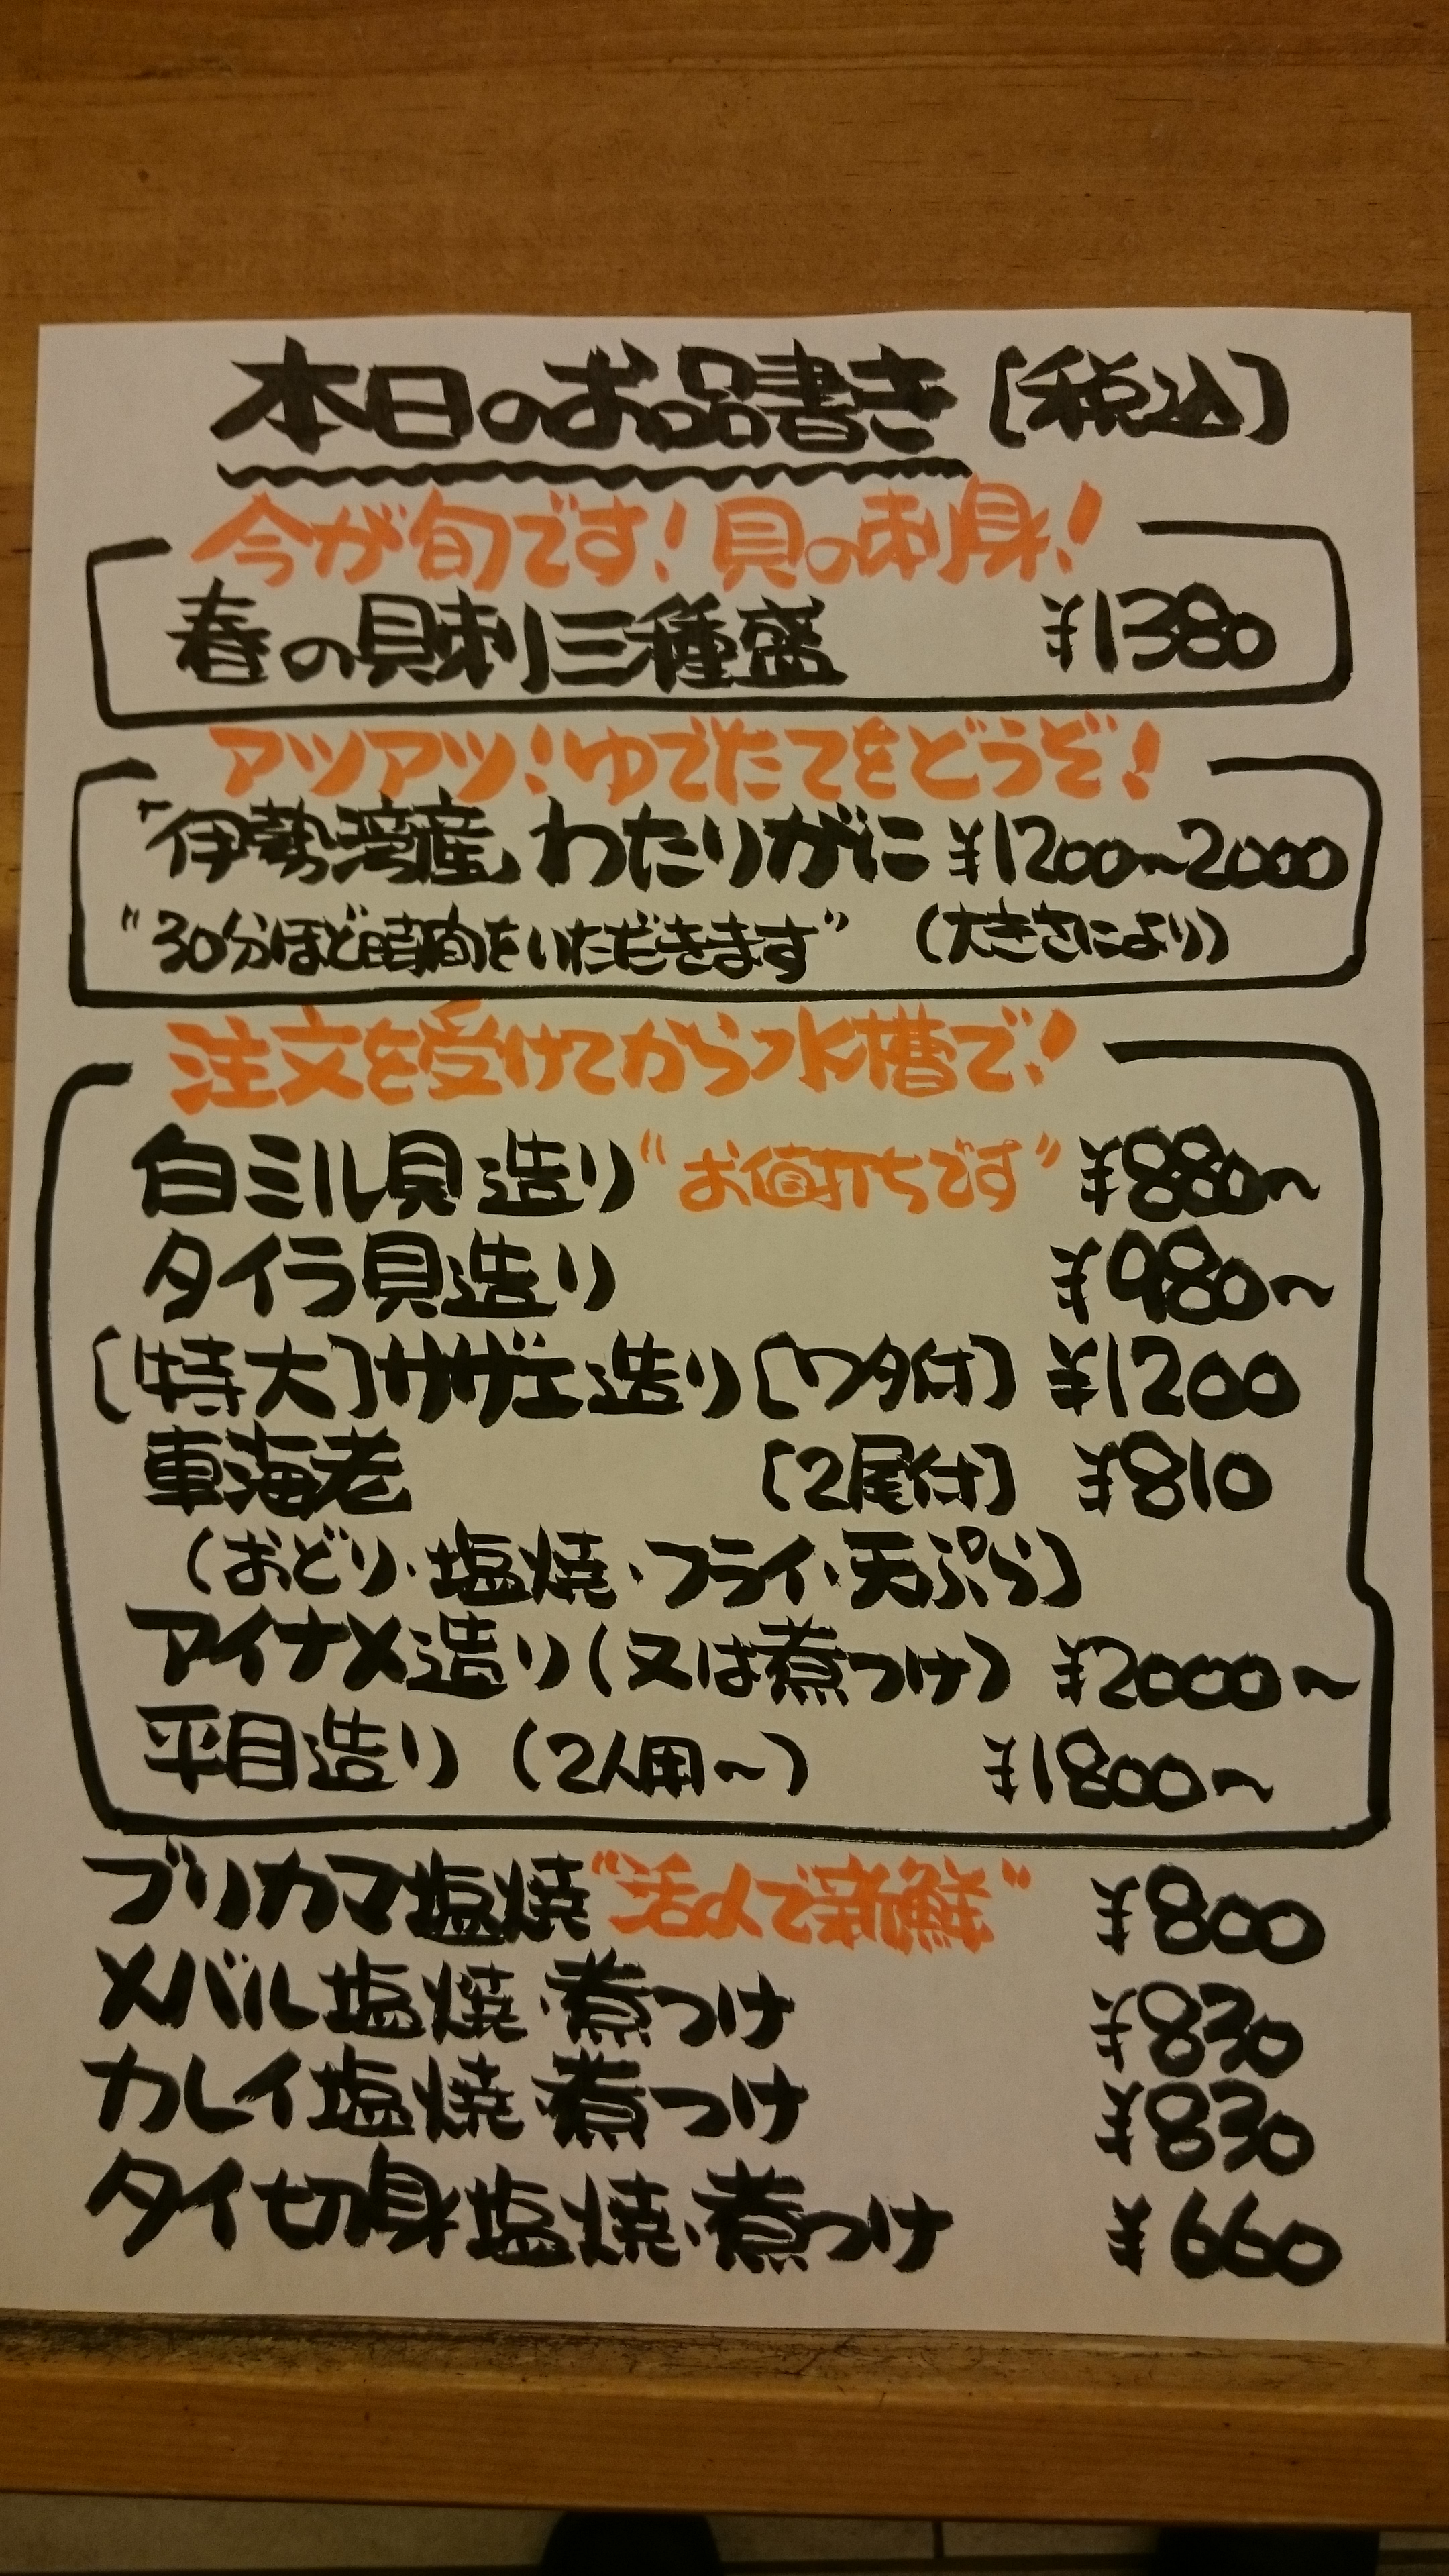 本日のお品書き〔税込〕
今が旬です！貝の刺身！
春の貝刺三種盛 ¥1380
アツアツ！ゆでたてをどうぞ！
"伊勢湾産"わたりがに ¥1200〜2000
"30分ほど時間をいただきます" (大きさにより)
注文を受けてから水槽で！
白ミル貝造り"お値打ちです" ¥880〜
タイラ貝造り ¥980〜
〔特大〕サザエ造り〔ワタ付〕 ¥1200
車海老 〔2尾付〕 ¥810
(おどり・塩焼・フライ・天ぷら〕
アイナメ造り(又は煮つけ) ¥2000〜
平目造り (2人用〜) ¥1800〜
ブリカマ塩焼"活〆で新鮮" ¥800
メバル塩焼・煮つけ ¥830
カレイ塩焼・煮つけ ¥830
タイ切身塩焼・煮つけ ¥660